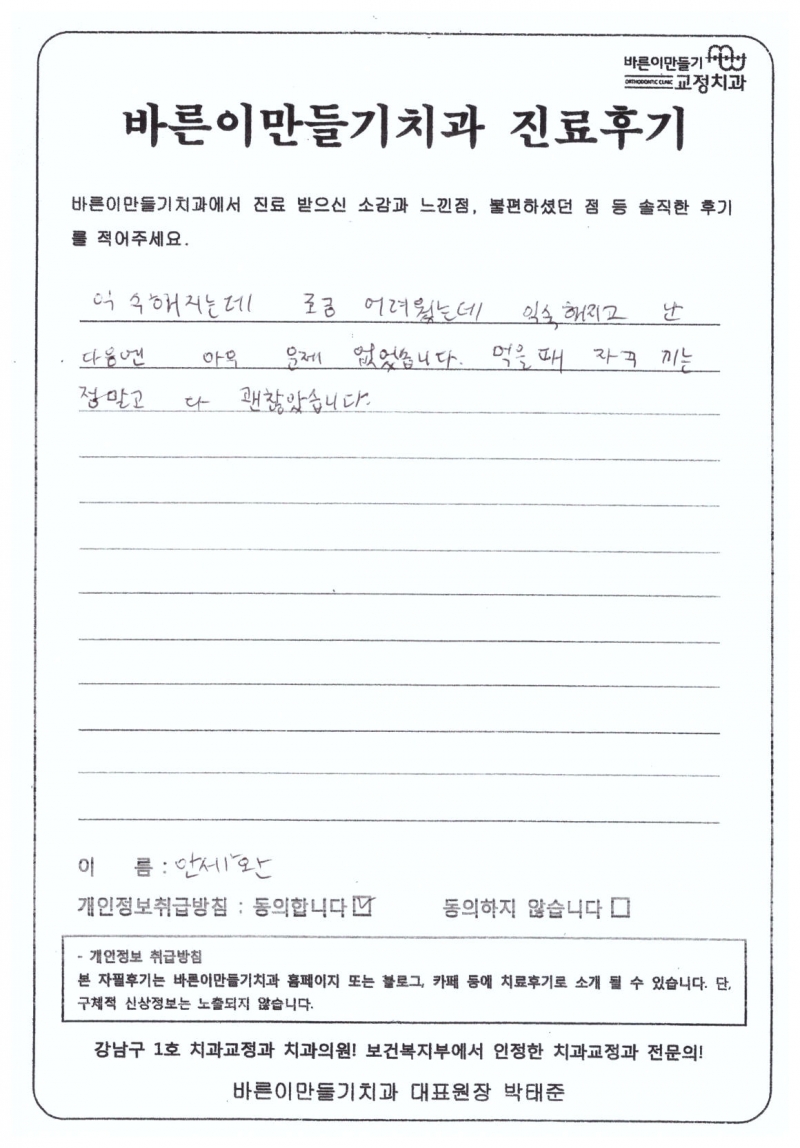 바른이만들기
ORTHODONTIC CLINIC 교정치과
바른이만들기치과 진료후기
바른이만들기치과에서 진료 받으신 소감과 느낀점, 불편하셨던 점 등 솔직한 후기
를 적어주세요.
익숙해지는데 조금 어려웠는데 익숙해지고 난
다음엔 아무 문제 없었습니다. 먹을때 자꾸 끼는
정말고 다 괜찮았습니다.
이 름 : 안세완
개인정보취급방침 : 동의합니다 ☑ 동의하지 않습니다 □
- 개인정보 취급방침
본 자필후기는 바른이만들기치과 홈페이지 또는 블로그, 카페 등에 치료후기로 소개 될 수 있습니다. 단,
구체적 신상정보는 노출되지 않습니다.
강남구 1호 치과교정과 치과의원! 보건복지부에서 인정한 치과교정과 전문의!
바른이만들기치과 대표원장 박태준